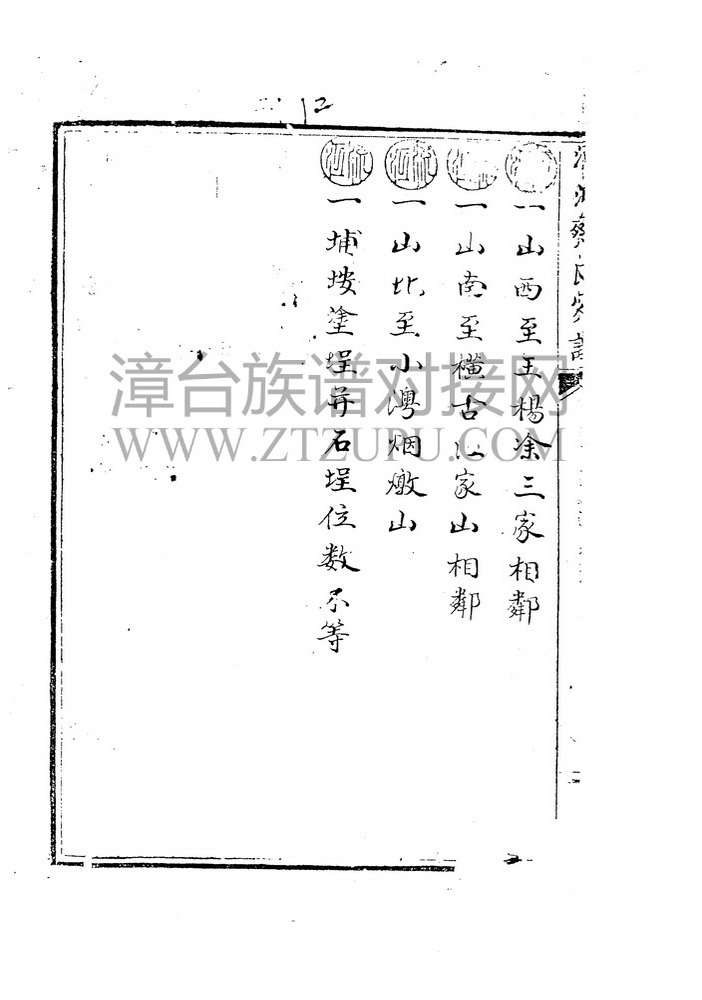 12
一山西至王楊涂三家相鄰
一山南至橫古 家山相鄰
一山北至小澳烟墩山
一埔垵塗埕并石埕位数不等
蔡氏
漳台族谱对接网
WWW.ZTZUPU.COM